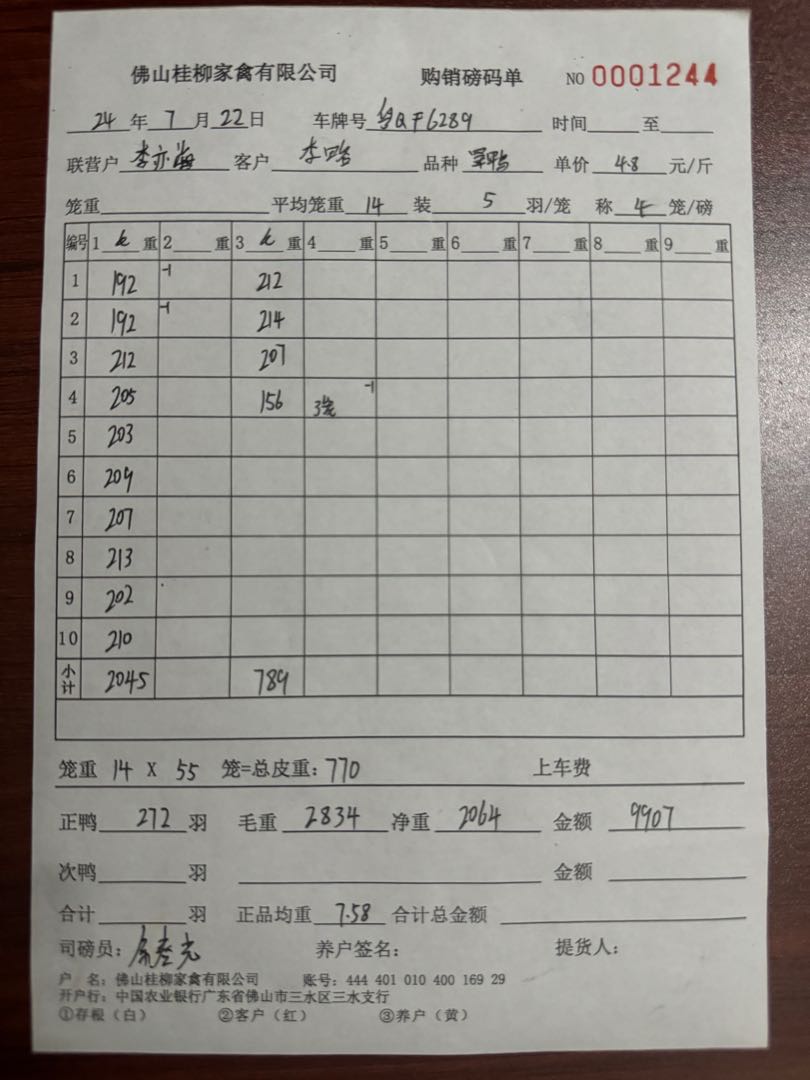 佛山桂柳家禽有限公司 购销磅码单 NO 0001244
24 年 7 月 22 日 车牌号 粤QF6289 时间 至
联营户 李亦海 客户 李 品种 鸭 单价 4.8 元/斤
笼重 平均笼重 14 装 5 羽/笼 称 4 笼/磅
编号 1 k 重 2 重 3 k 重 4 重 5 重 6 重 7 重 8 重 9 重
1 192 -1 212
2 192 -1 214
3 212 207
4 205 156 3笼 -1
5 203
6 209
7 207
8 213
9 202
10 210
小计 2045 789
笼重 14 X 55 笼=总皮重: 770 上车费
正鸭 272 羽 毛重 2834 净重 2064 金额 9907
次鸭 羽 金额
合计 羽 正品均重 7.58 合计总金额
司磅员: 养户签名: 提货人:
户 名: 佛山桂柳家禽有限公司 账号: 444 401 010 400 169 29
开户行: 中国农业银行广东省佛山市三水区三水支行
①存根(白) ②客户(红) ③养户(黄)